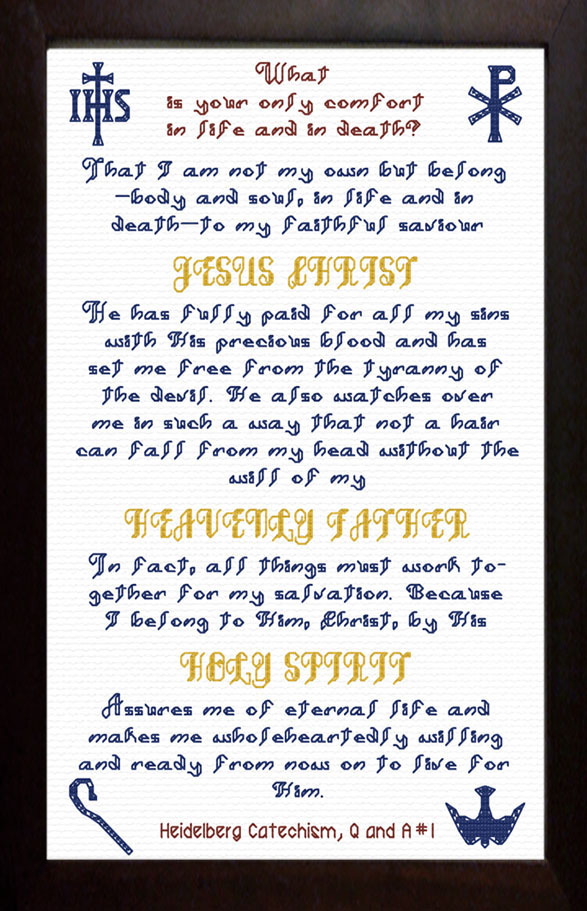 IHS
What
is your only comfort
in life and in death?
That I am not my own but belong
—body and soul, in life and in
death—to my faithful saviour
JESUS CHRIST
He has fully paid for all my sins
with His precious blood and has
set me free from the tyranny of
the devil. He also watches over
me in such a way that not a hair
can fall from my head without the
will of my
HEAVENLY FATHER
In fact, all things must work to-
gether for my salvation. Because
I belong to Him, Christ, by His
HOLY SPIRIT
Assures me of eternal life and
makes me wholeheartedly willing
and ready from now on to live for
Him.
Heidelberg Catechism, Q and A #1